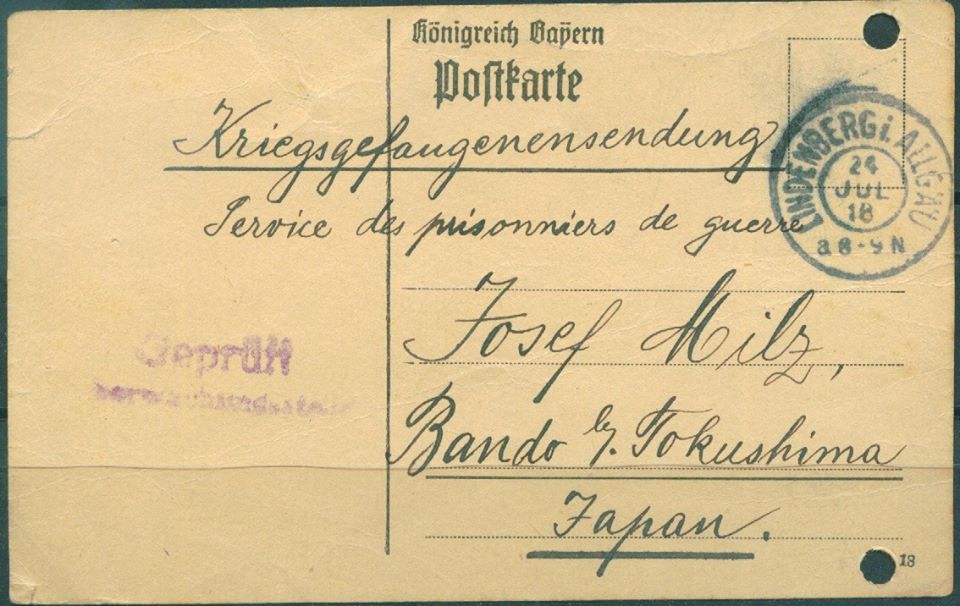 Königreich Bayern
Postkarte
Kriegsgefangenensendung
Service des prisonniers de guerre
LINDENBERG i. ALLGÄU
24
JUL
18
8-9 N
Josef Milz,
Geprüft
Bando b/. Tokushima
Japan.
18